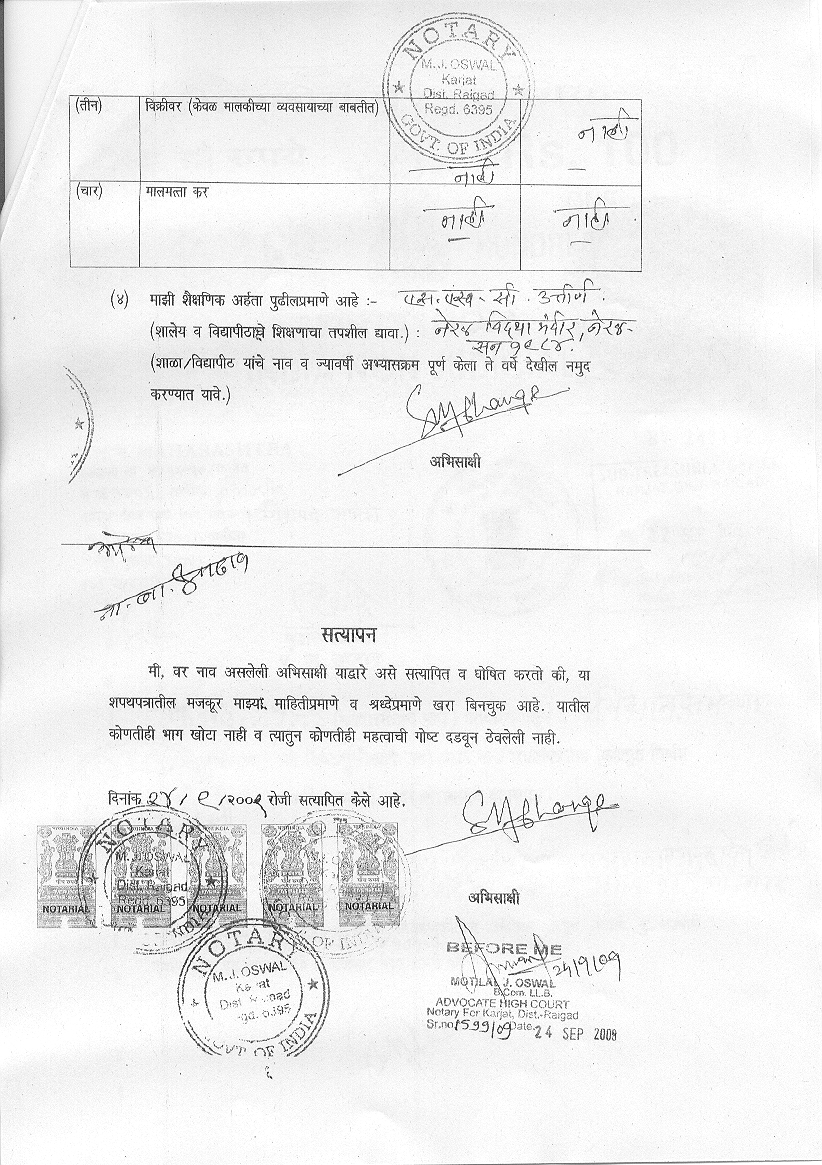 NOTARY
M. J. OSWAL
Karjat
Dist. Raigad
Regd. 6395
GOVT. OF INDIA
(तीन) विक्रीवर (केवळ मालकीच्या व्यवसायाच्या बाबतीत) नाही नाही
(चार) मालमत्ता कर नाही नाही
(४) माझी शैक्षणिक अर्हता पुढीलप्रमाणे आहे :- एस. एस. सी. उत्तीर्ण.
(शालेय व विद्यापीठाचे शिक्षणाचा तपशील द्यावा.) : नेरळ विद्या मंदीर, नेरळ-
सन १९८४.
(शाळा/विद्यापीठ यांचे नाव व ज्यावर्षी अभ्यासक्रम पूर्ण केला ते वर्ष देखील नमुद
करण्यात यावे.)
अभिसाक्षी
सत्यापन
मी, वर नाव असलेली अभिसाक्षी याद्वारे असे सत्यापित व घोषित करतो की, या
शपथपत्रातील मजकूर माझ्या माहितीप्रमाणे व श्रध्देप्रमाणे खरा बिनचुक आहे. यातील
कोणतीही भाग खोटा नाही व त्यातुन कोणतीही महत्वाची गोष्ट दडवून ठेवलेली नाही.
दिनांक २४/९/२००९ रोजी सत्यापित केले आहे.
अभिसाक्षी
NOTARIAL NOTARIAL NOTARIAL NOTARIAL NOTARIAL
NOTARY
M. J. OSWAL
Karjat
Dist. Raigad
Regd. 6395
NOTARY
M. J. OSWAL
Dist.
6395
GOVT OF INDIA
BEFORE ME
24/9/09
MOTILAL J. OSWAL
B.Com. LL.B.
ADVOCATE HIGH COURT
Notary For Karjat, Dist.-Raigad
Sr.no 1599/09 Date 24 SEP 2009
६